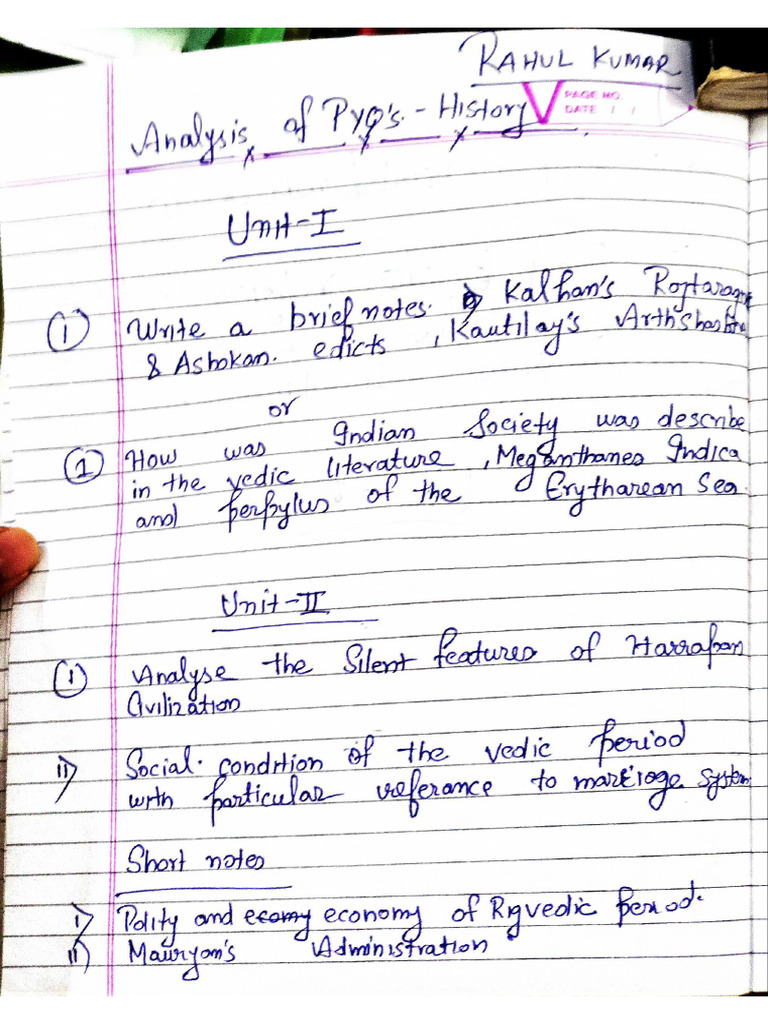 RAHUL KUMAR
PAGE NO.
DATE / /
Analysis of PYQ's. - History
Unit-I
① Write a brief notes. Kalhan's Rajtarang
& Ashokan. edicts , Kautilay's Arthshastra
or
① How was Indian Society was describe
in the vedic literature , Meganthanes Indica
and perpylus of the Erytharean Sea.
Unit-II
① Analyse the Silent features of Harrapan
Civilization
ii) Social. condition of the vedic period
with particular referance to marriage system
Short notes
i) Polity and economy of Rigvedic period.
ii) Mauryan's Administration